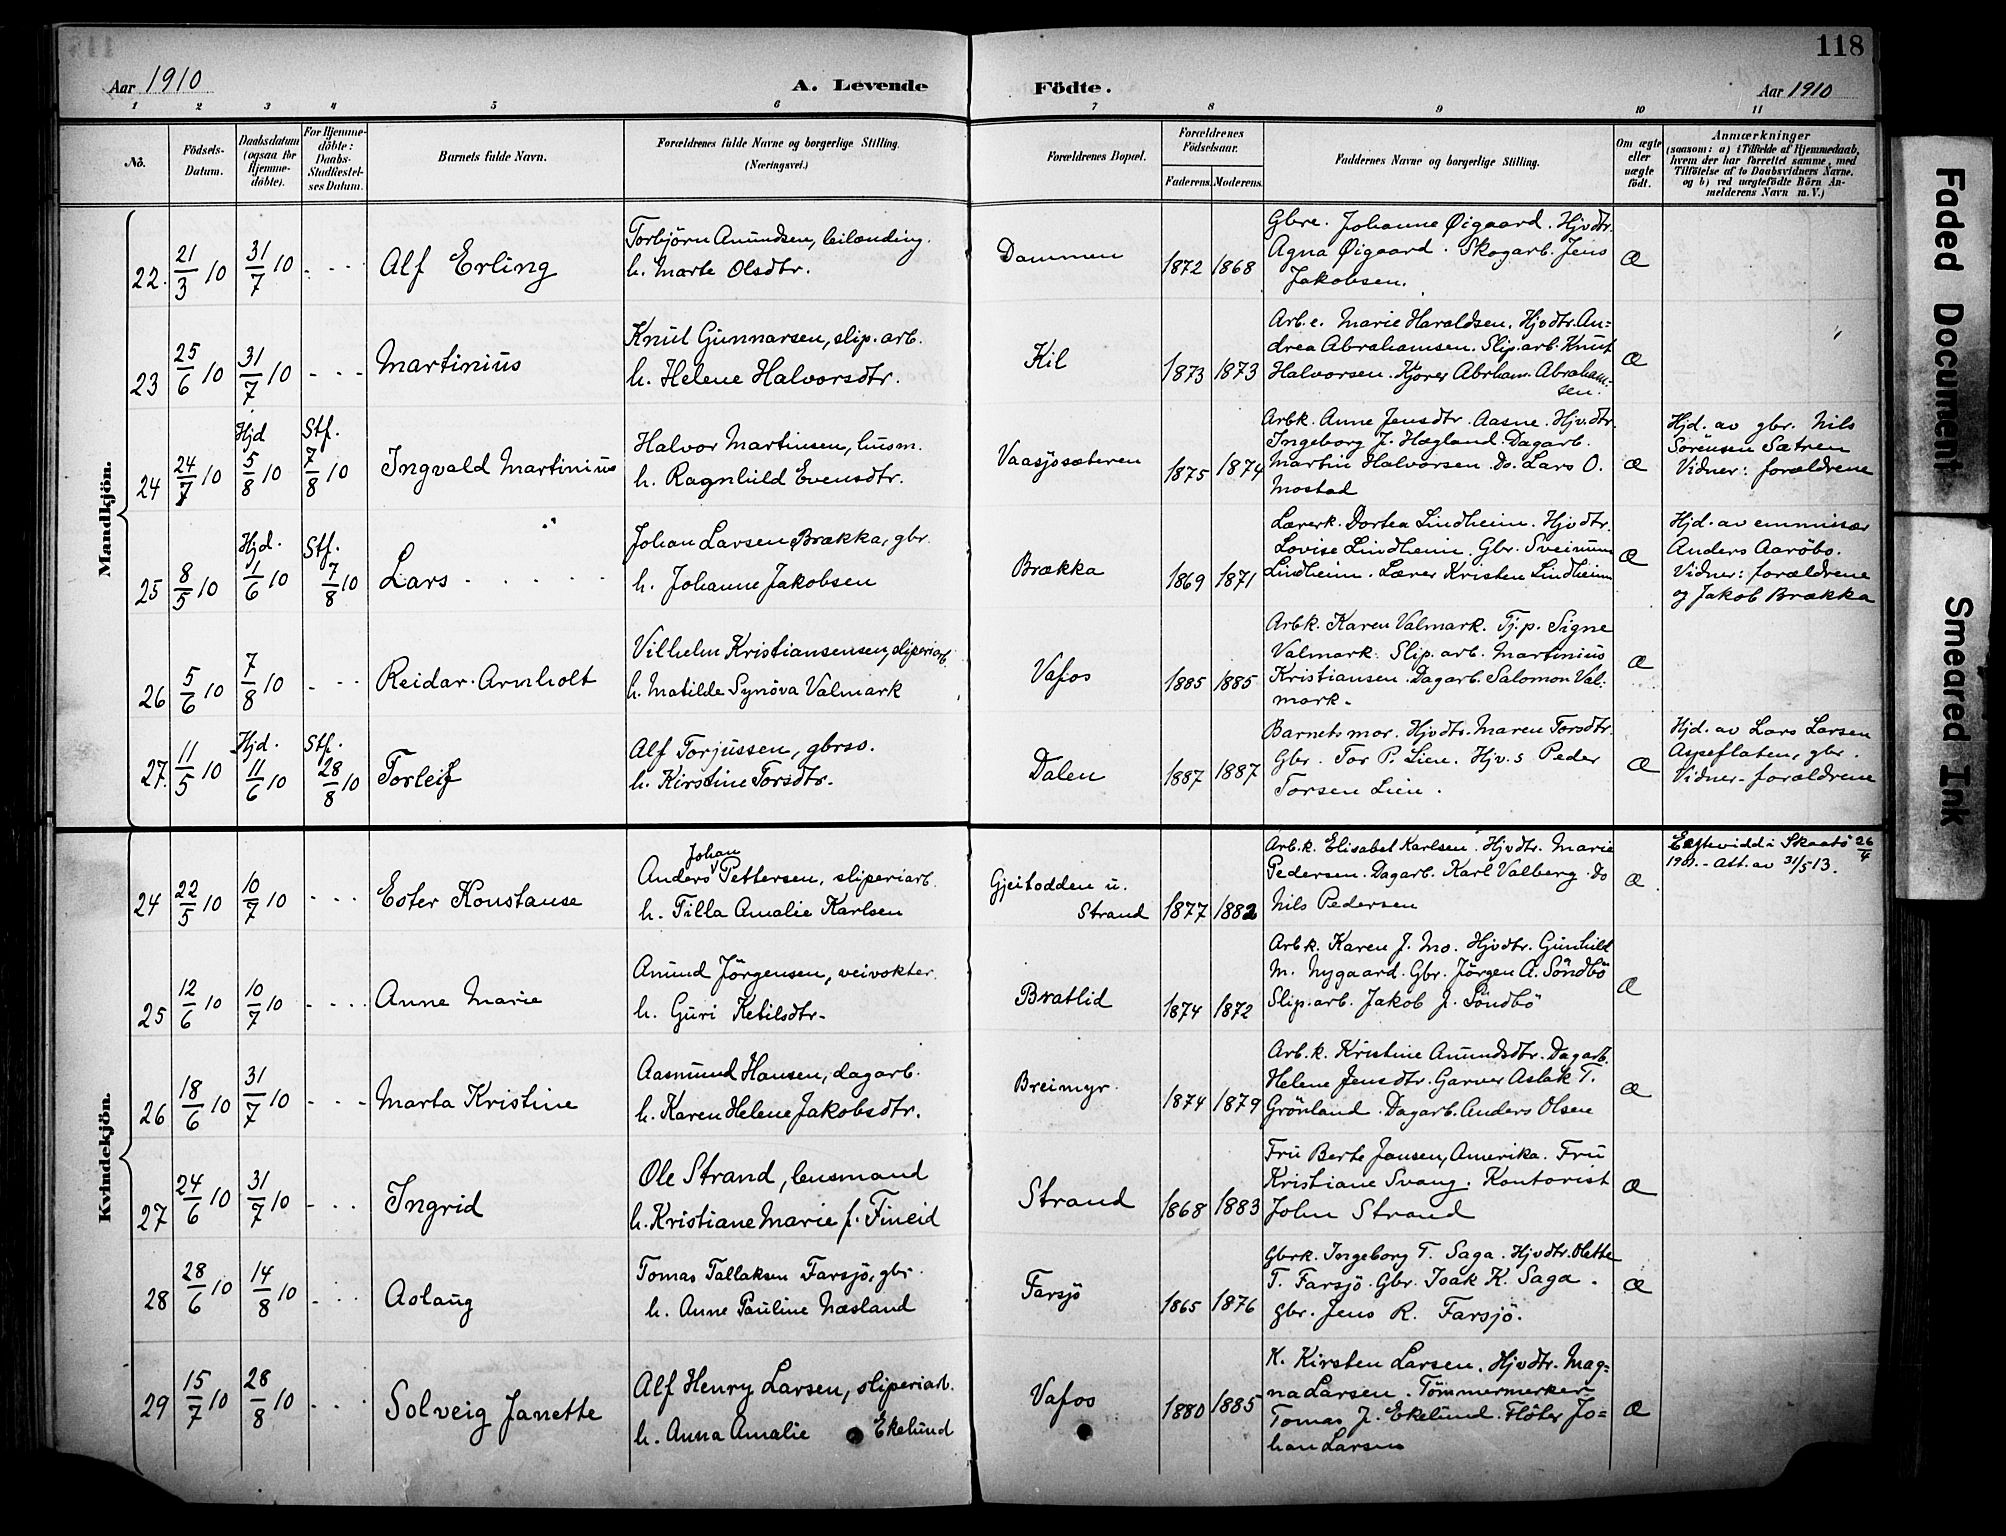 118
Aar 1910
A. Levende
Födte.
Aar 1910
1 2 3 4 5 6 7 8 9 10 11
No.
Födsels-
Datum.
Daabsdatum
(ogsaa for
Hjemme-
döbte).
For Hjemme-
döbte:
Daabs-
Stadfæstel-
ses Datum.
Barnets fulde Navn.
Forældrenes fulde Navne og borgerlige Stilling.
(Næringsvei.)
Forældrenes Bopæl.
Forældrenes
Födselsaar.
Faderens. Moderens.
Faddernes Navne og borgerlige Stilling.
Om ægte
eller
uægte
födt.
Anmærkninger
(saasom: a) i Tilfælde af Hjemmedaab,
hvem der har forrettet samme, med
Tilföielse af to Daabsvidners Navne,
og b) ved uægtefödte Börn An-
melderens Navn m. V.)
Mandkjön.
22. 21/3 10 31/7 10 Alf Erling
Torbjörn Anundsen, leilænding.
h. Marte Olsdtr.
Dammen 1872 1868
Gbre. Johanne Øigaard. Hjvdtr.
Agna Øigaard. Skogarb. Jens
Jakobsen.
Æ
23 25/6 10 31/7 10 Martinius
Knut Gunnarsen, slip. arb.
h. Helene Halvorsdtr.
Kil 1873 1873
Arb.e. Marie Haraldsen. Hjvdtr. An=
drea Abrahamsen. Slip. arb. Knut
Halvorsen. Kjører Abrham. Abraham=
sen.
Æ
24 24/7 10 Hjd 5/8 10 Stf. 7/8 10 Ingvald Martinius
Halvor Martinsen, husm.
h. Ragnhild Evensdtr.
Vaasjosæteren 1875 1874
Arbk. Anne Jensdtr. Aasne. Hjvdtr.
Ingeborg J. Hægland. Dagarb.
Martin Halvorsen Do. Lars O.
Mostad
Æ
Hjd. av gbr. Nils
Sørensen Sætren
Vidner: forældrene
25 8/5 10 Hjd. 1/6 10 Stf. 7/8 10 Lars
Johan Larsen Brækka, gbr.
h. Johanne Jakobsen
Brækka 1869 1871
Lærerk. Dortea Lindheim. Hjvdtr.
Lovise Lindheim. Gbr. Sveinum
Lindheim. Lærer Kristen Lindheim
Æ
Hjd. av emmissær
Anders Aaröbo.
Vidner: forældrene
og Jakob Brækka
26 5/6 10 7/8 10 Reidar Arnholt
Vilhelm Kristiansensen, sliperiarb.
h. Matilde Synöva Valmark
Vafos 1885 1885
Arbk. Karen Valmark. Tj.p. Signe
Valmark. Slip. arb. Martinius
Kristiansen. Dagarb. Salomon Val=
mark.
Æ
27. 11/5 10 Hjd. 11/6 10 Stf. 28/8 10 Torleif
Alf Torjussen, gbrsø.
h. Kirstine Torsdtr.
Dalen 1887 1887
Barnets mor. Hjvdtr. Maren Torsdtr.
Gbr. Tor P. Lien. Hjv.s Peder
Torsen Lien.
Æ
Hjd. av Lars Larsen
Aspeflaten, gbr.
Vidner. forældrene
Kvindekjön.
24 22/5 10 10/7 10 Ester Konstanse
Johan
Anders Pettersen, sliperiarb.
h. Tilla Amalie Karlsen
Gjeitodden u.
Strand 1877 1882
Arb.k. Elisabet Karlsen. Hjvdtr. Marie
Pedersen. Dagarb. Karl Valberg. Do
Nils Pedersen
Æ
i Skaatö 26/4
Att. av 31/5 13.
25 12/6 10 10/7 10 Anne Marie
Anund Jörgensen, veivokter.
h. Guri Ketilsdtr.
Bratlid 1874 1872
Arb.k. Karen J. Mo. Hjvdtr. Gunhild
M. Nygaard. Gbr. Jörgen A. Söndbö
Slip. arb. Jakob J. Söndbö
Æ
26 18/6 10 31/7 10 Marta Kristine
Aasmund Hansen, dagarb.
h. Karen Helene Jakobsdtr.
Breimyr 1874 1879
Arb.k. Kristine Anundsdtr. Dagarb.
Helene Jensdtr. Garver Aslak T.
Grönland. Dagarb. Anders Olsen
Æ
27 24/6 10 31/7 10 Ingrid
Ole Strand, lensmand
h. Kristiane Marie f. Fineid
Strand 1868 1883
Fru Berte Jansen, Amerika. Fru
Kristiane Svang. Kontorist
John Strand
Æ
28 28/6 10 14/8 10 Aslaug
Tomas Tallaksen Farsjö, gbr.
h. Anne Pauline Næsland
Farsjö 1865 1876
Gbrk. Ingeborg T. Saga. Hjvdtr. Olette
T. Farsjö. Gbr. Isak K. Saga.
gbr. Jens R. Farsjö.
Æ
29 15/7 10 28/8 10 Solveig Janette
Alf Henry Larsen, sliperiarb.
h. Anna Amalie Ekelund
Vafos 1880 1885
K. Kirsten Larsen. Hjvdtr. Mag=
na Larsen. Tömmermerker
Tomas J. Ekelund. Flöter Jo=
han Larsen
Æ
Faded Document
Smeared Ink